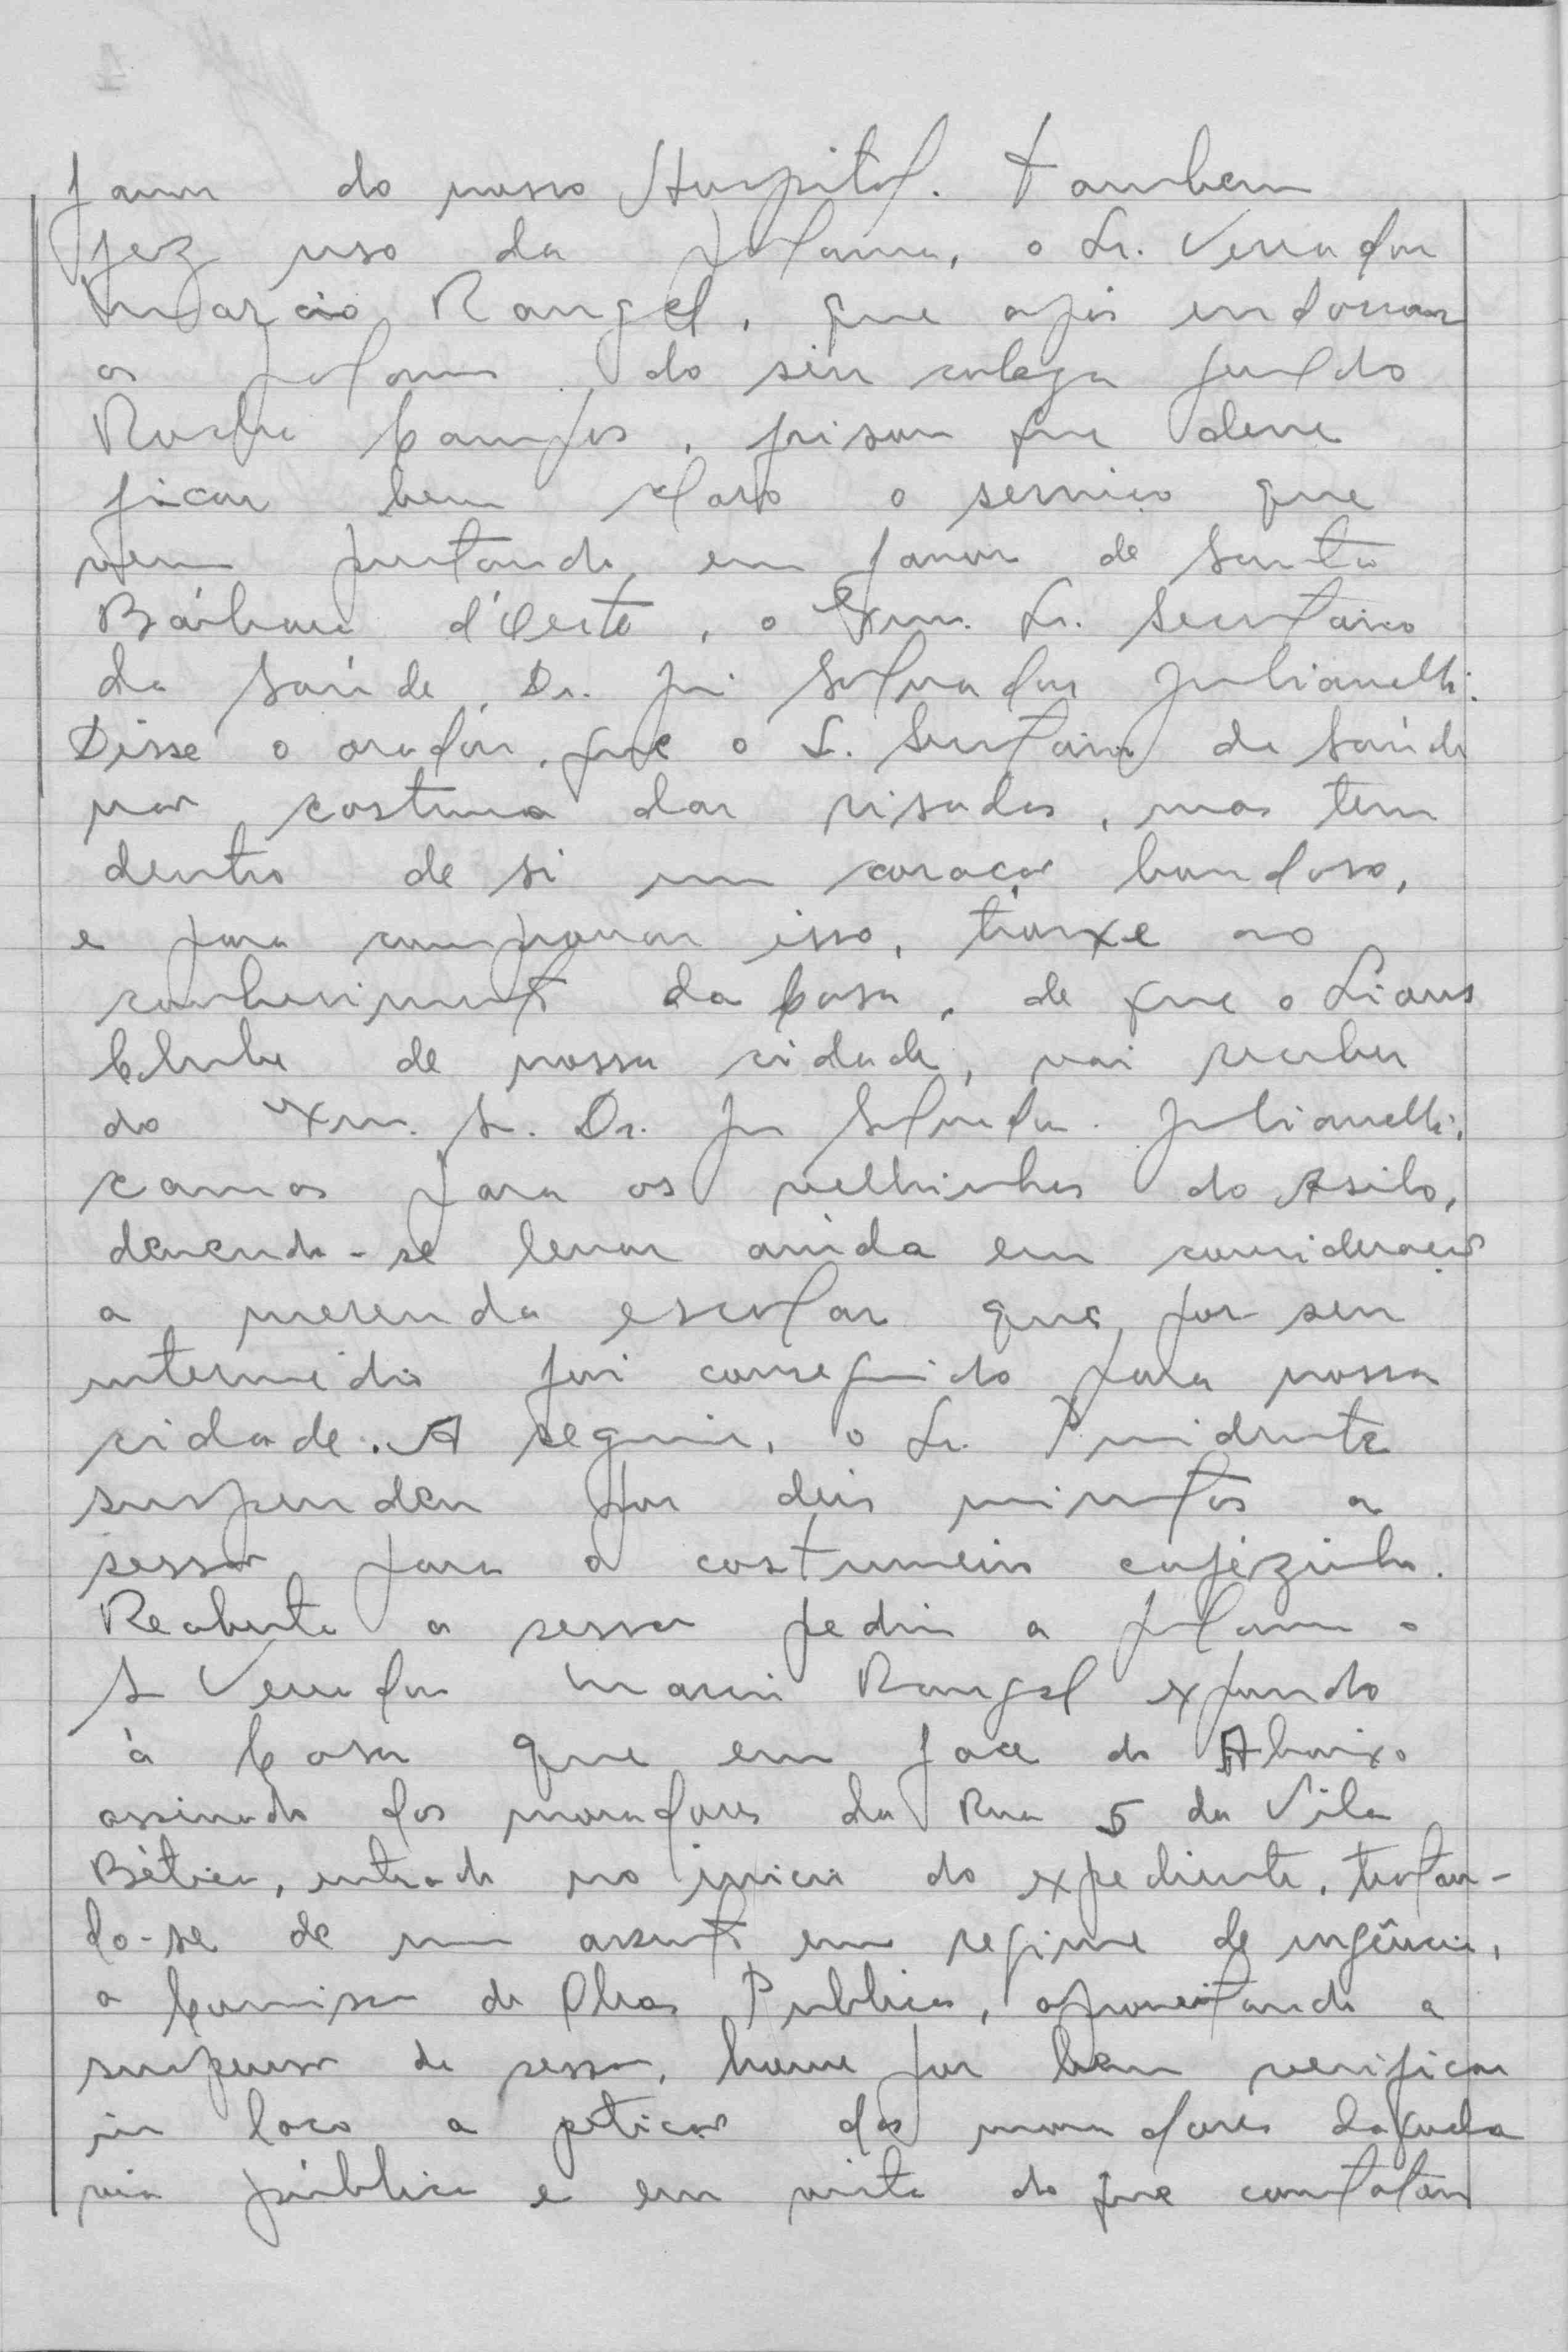 favor do nosso Hospital. Tambem
fez uso da palavra, o Sr. Vereador
Marcio Rangel, que após endossar
as palavras do seu colega
Rocha Campos, frisou que deve
ficar bem claro o serviço que
vem prestando, em favor de Santa
Bárbara d'Oeste, o Exmo. Sr. Secretário
da Saúde, Dr. José Salvador Julianelli.
Disse o orador, que o Sr. Secretário da Saúde
não costuma dar risadas, mas tem
dentro de si um coração bondoso,
e para comprovar isso, trouxe ao
conhecimento da Casa, de que o Lions
Clube de nossa cidade, vai receber
do Exmo. Sr. Dr. José Salvador Julianelli,
camas para os velhinhos do Asilo,
devendo-se levar ainda em consideração
a merenda escolar que, por seu
intermédio foi conseguido para nossa
cidade. A seguir, o Sr. Presidente
suspendeu por dois minutos a
sessão para o costumeiro cafézinho.
Reaberta a sessão pediu a palavra o
Sr Vereador Marcio Rangel expondo
à Casa que em face do Abaixo
assinado dos moradores da Rua 5 da Vila
Bética, entrado no inicio do expediente, tratan-
do-se de um assunto em regime de urgência,
a Comissão de Obras Publicas, aproveitando a
suspensão da sessão, houve por bem verificar
in loco a petição dos moradores daquela
via pública e em vista do que constatou